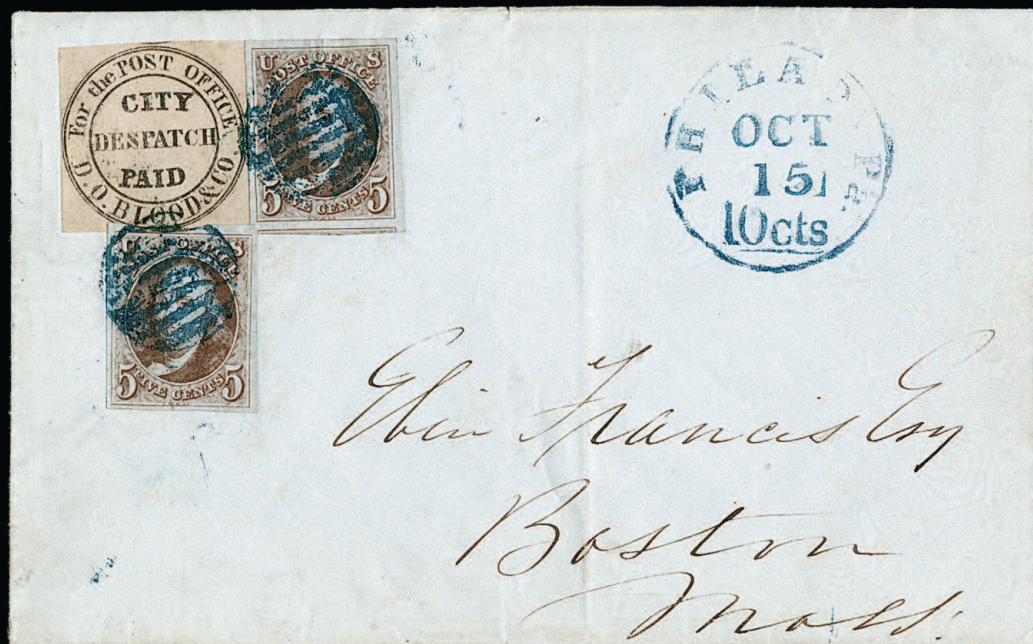 For the POST OFFICE.
CITY
DESPATCH
PAID
D.O. BLOOD & CO
U S
POST OFFICE
FIVE CENTS
5 5
U S
POST OFFICE
FIVE CENTS
5 5
PHILADA Pa.
OCT
15
10cts
Eben Francis Esq
Boston
Mass.